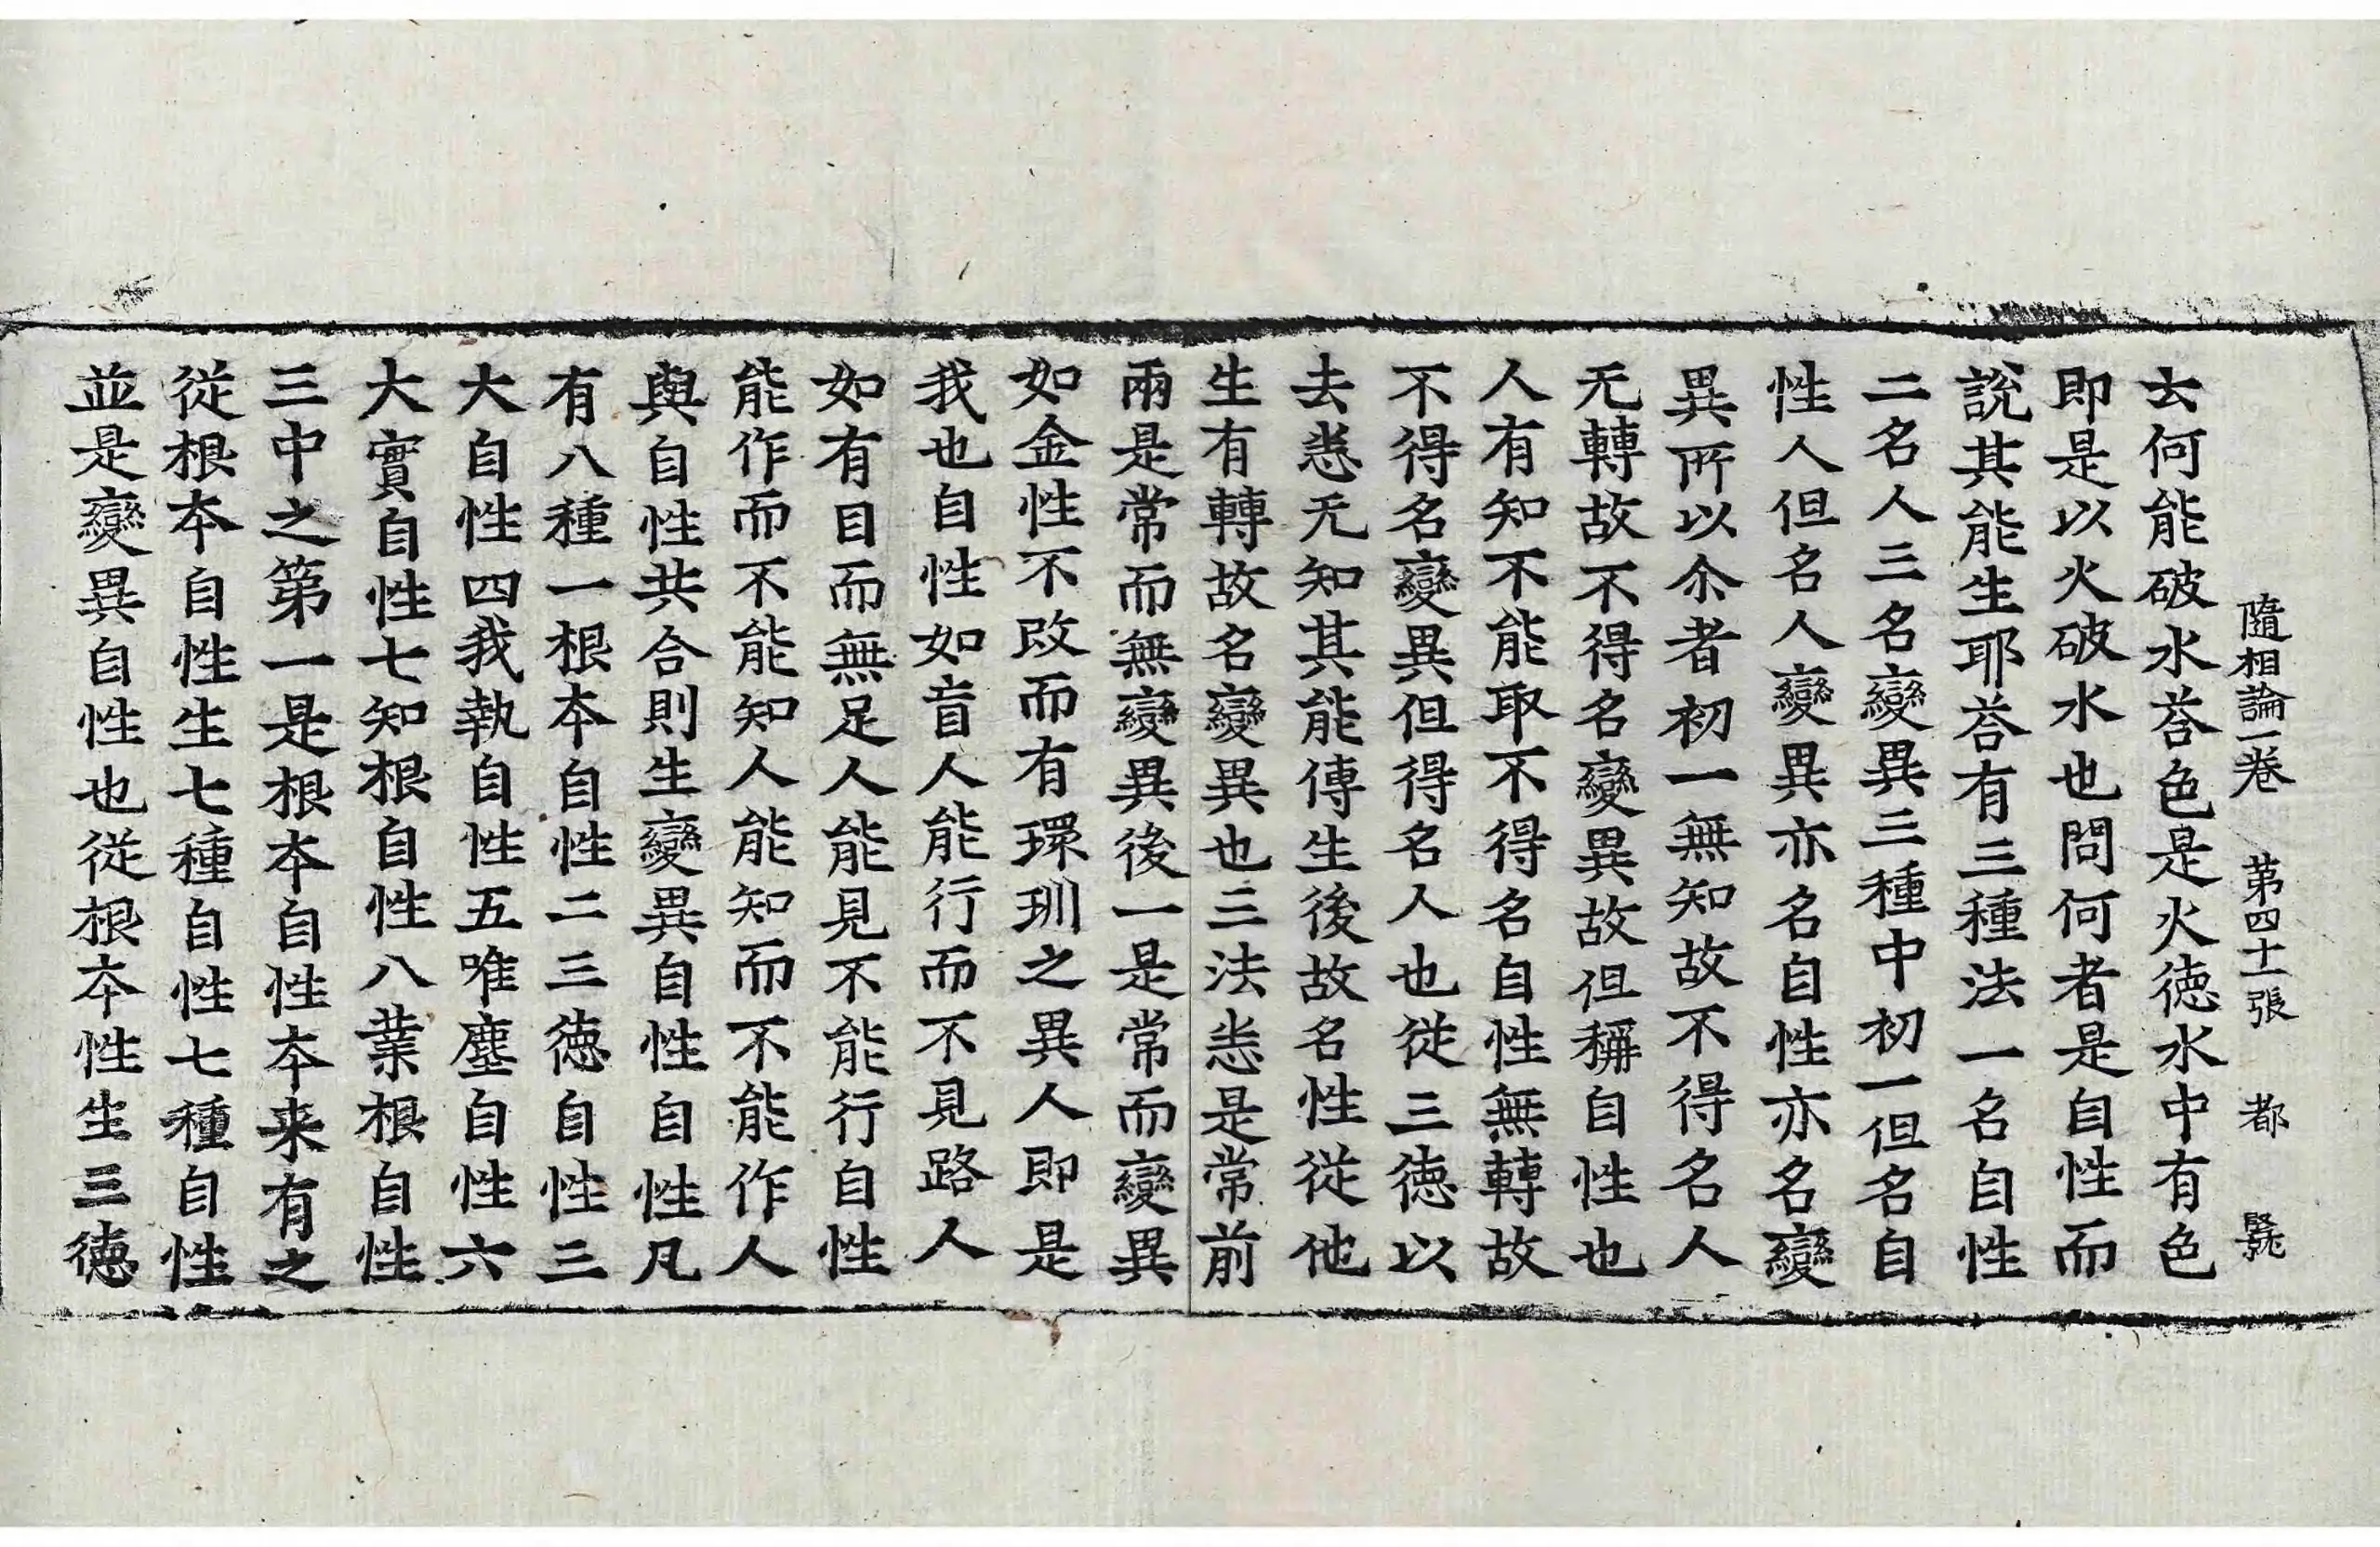 隨相論一卷 第四十一張 都 號
去何能破水荅色是火徳水中有色
即是以火破水也問何者是自性而
說其能生耶荅有三種法一名自性
二名人三名變異三種中初一但名自
性人但名人變異亦名自性亦名變
異所以尒者初一無知故不得名人
无轉故不得名變異故但稱自性也
人有知不能取不得名自性無轉故
不得名變異但得名人也從三徳以
去悉无知其能傳生後故名性從他
生有轉故名變異也三法悉是常前
兩是常而無變異後一是常而變異
如金性不改而有環玔之異人即是
我也自性如盲人能行而不見路人
如有目而無足人能見不能行自性
能作而不能知人能知而不能作人
與自性共合則生變異自性自性凡
有八種一根本自性二三徳自性三
大自性四我執自性五唯塵自性六
大實自性七知根自性八業根自性
三中之第一是根本自性本来有之
從根本自性生七種自性七種自性
並是變異自性也從根本性生三徳